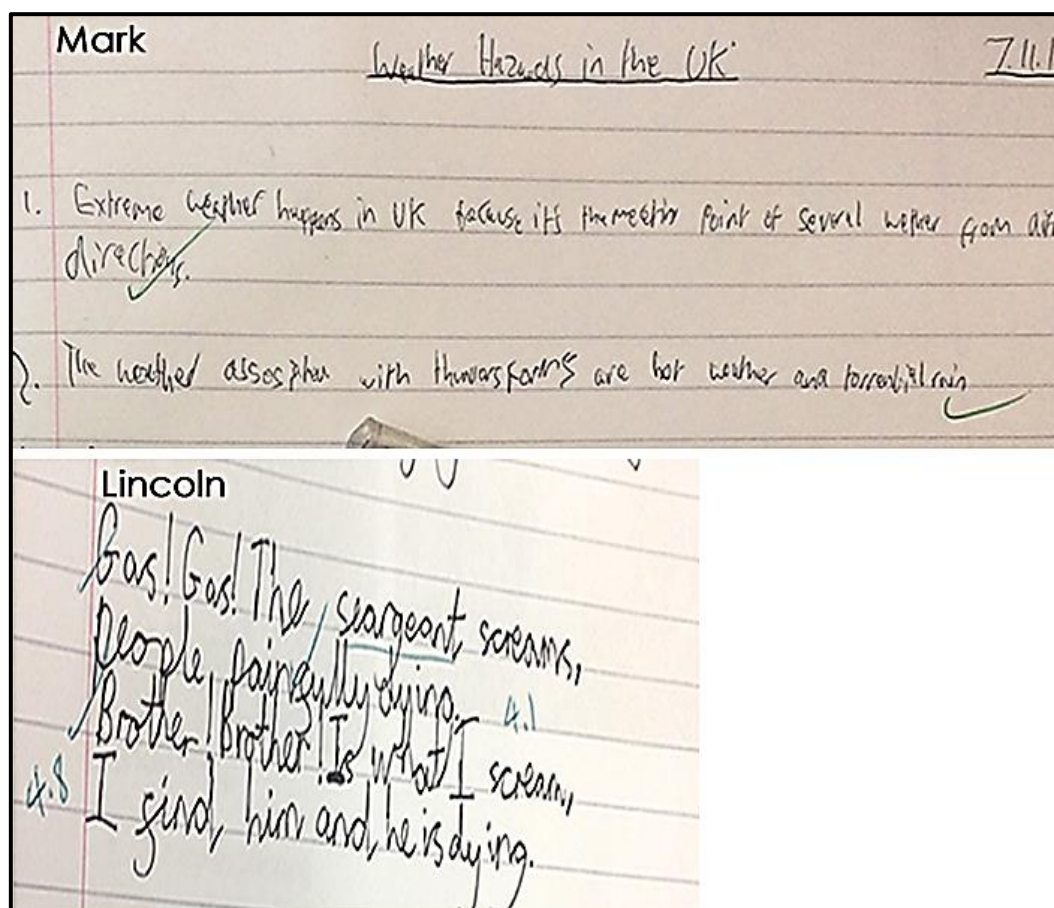 Mark
Weather Hazards in the UK
7.11.1
1. Extreme weather happens in UK because it's the meeting point of several wether from
directions.
2. The weather with are hot weather and torrential rain
Lincoln
Gas! Gas! The seargeant screams,
people painfully dying. 4.1
Brother! Brother! Is what I scream,
4.8 I find him and he is dying.